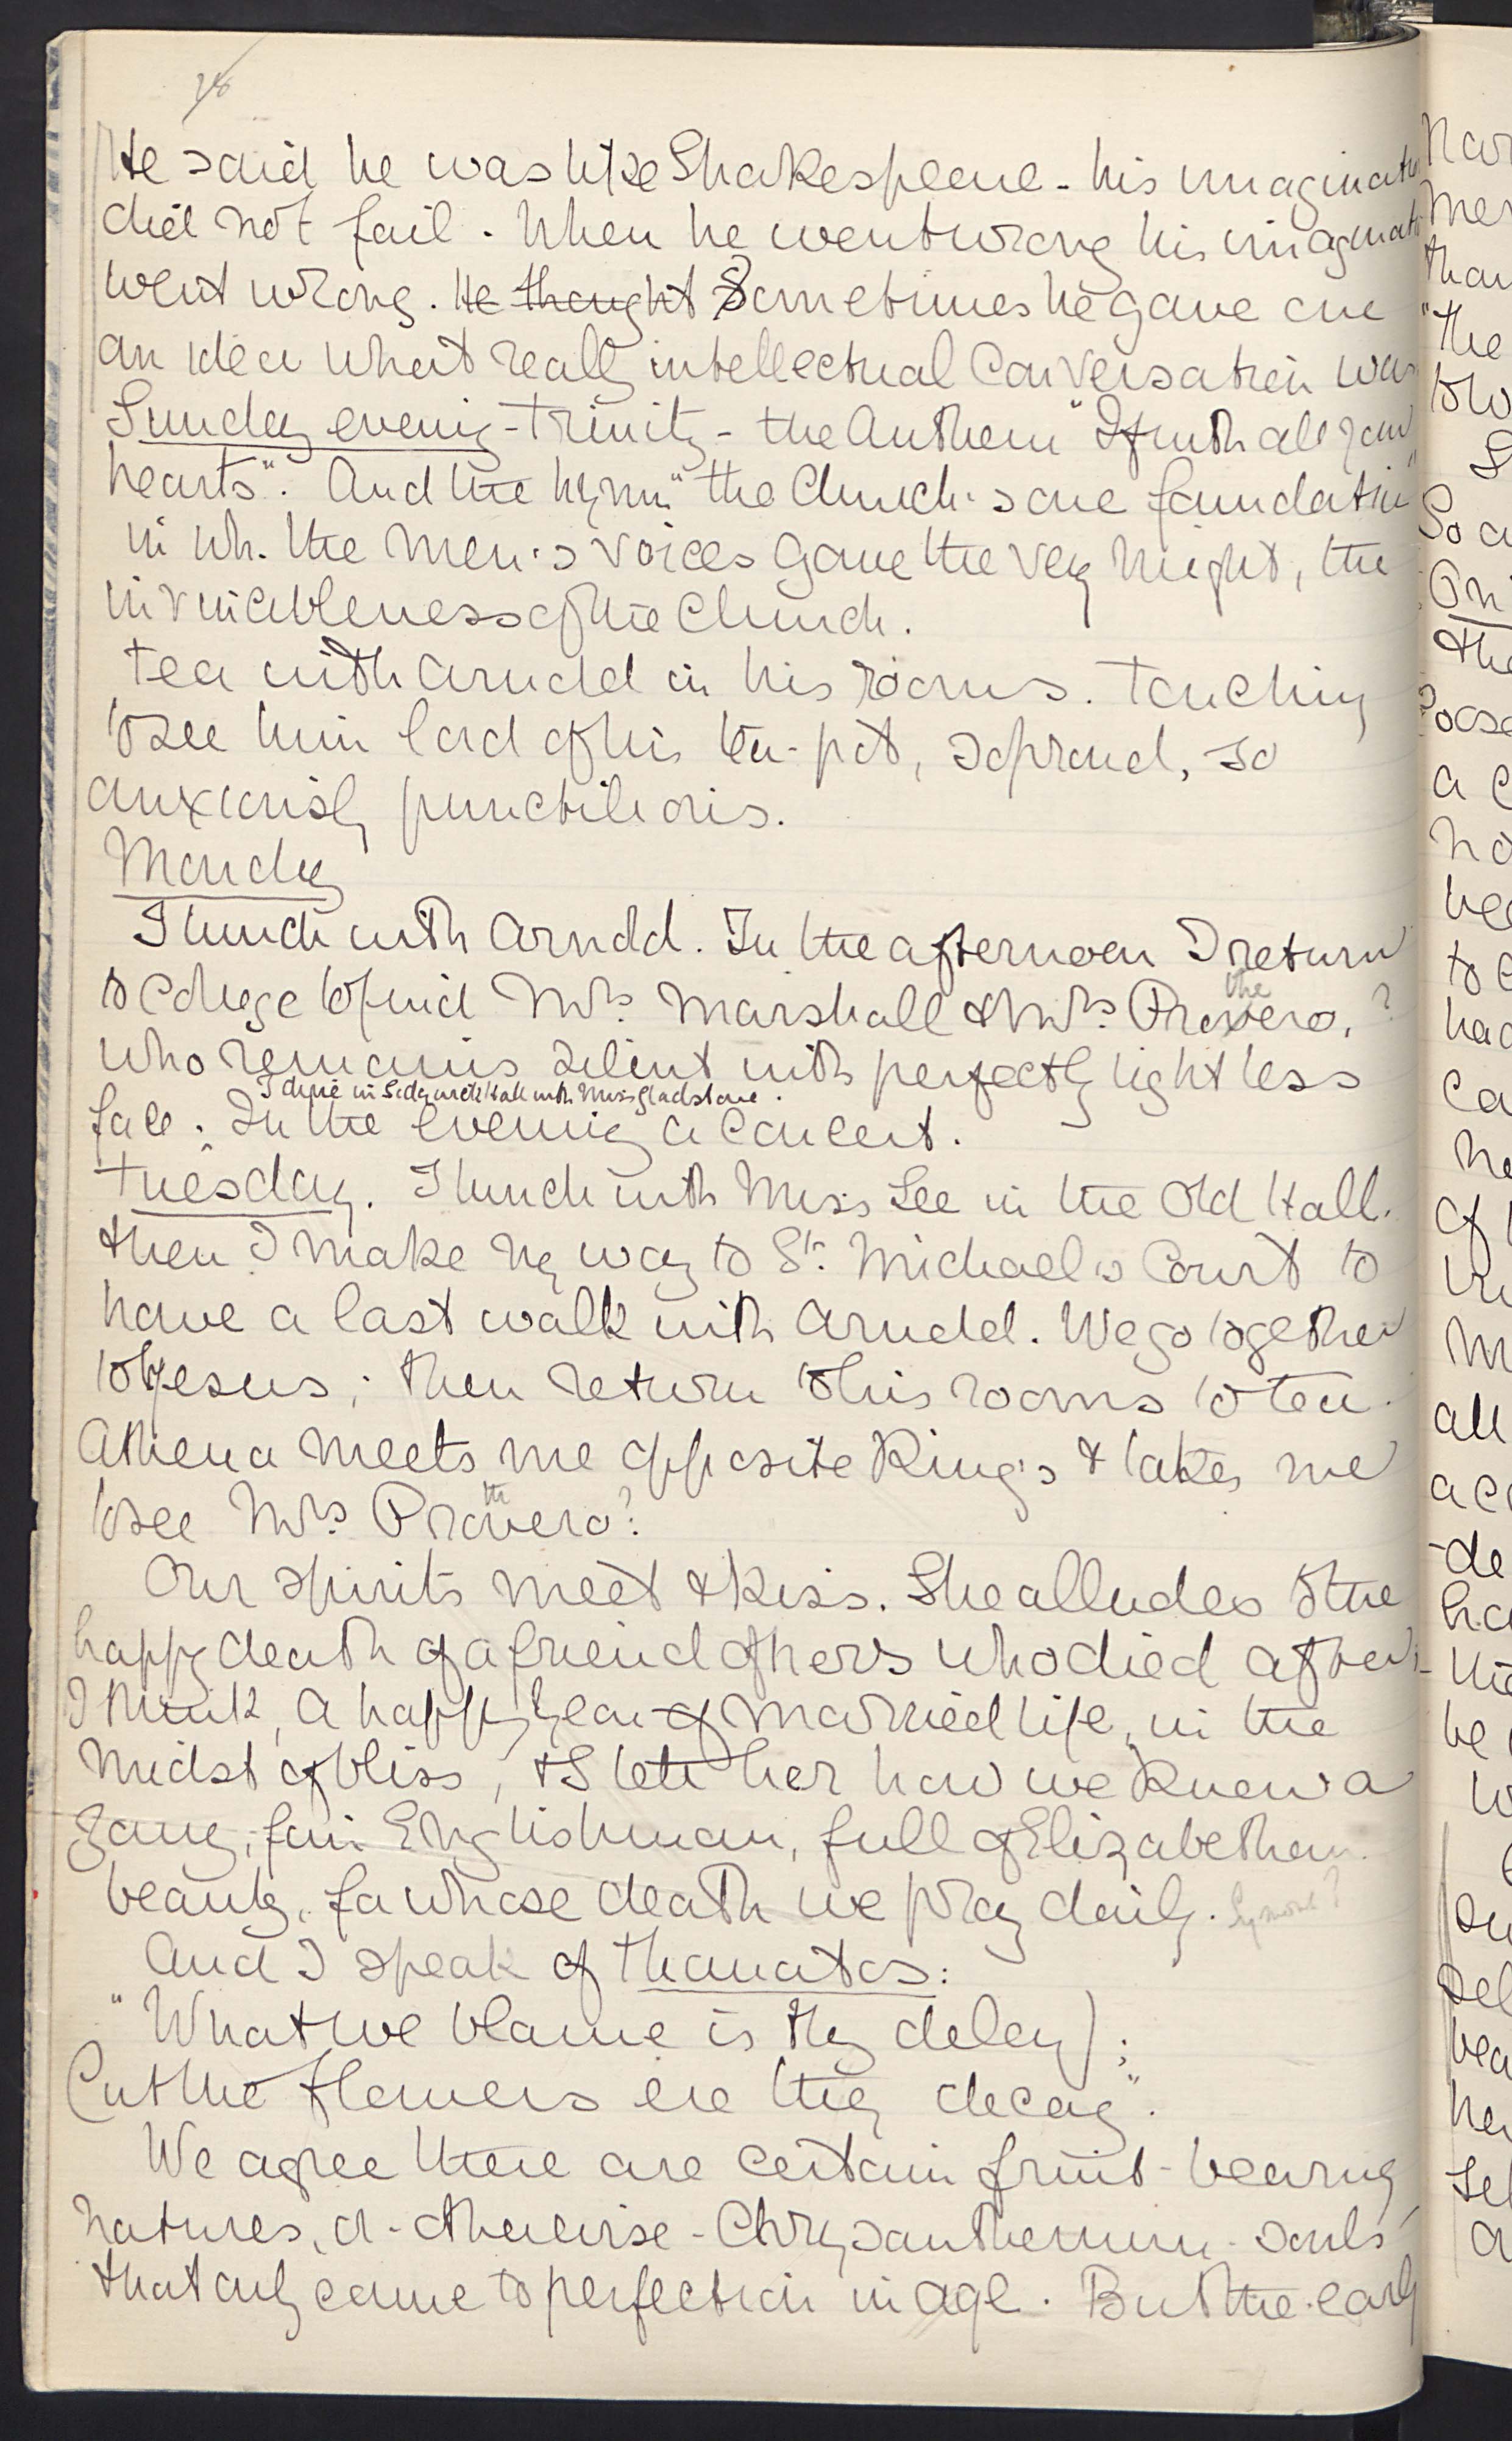 78
He said he was like Shakespeare - his imaginatn
did not fail. When he went wrong his imaginatn
went wrong. He thought Sometimes he gave one
an idea what really intellectual Conversation was
Sunday evening - Trinity - the Anthem "If with all your
hearts". And the hymn "the Church's one foundation"
in wh. the men's voices gave the very might, the
invincibleness of the Church.
Tea with Arundel in his rooms. Touching
to see him lord of his tea-pot, so proud, so
anxiously punctilious.
Monday
I lunch with Arundel. In the afternoon I return
the
to College to find Mrs. Marshall & Mrs. Provero, ?
who remains silent with perfectly lightless
I dine in Sidgwick Hall with Miss Gladstone.
face. In the evening a concert.
Tuesday. I lunch with Miss Lee in the Old Hall.
then I make my way to St. Michael's Court to
have a last walk with Arundel. We go together
to Jesus; then return to his rooms to tea.
Athena meets me opposite King's & takes me
th
to see Mrs Provero?
Our spirits meet & kiss. She alludes to the
happy death of a friend of hers who died after,
I think, a happy year of married life, in the
midst of bliss, & I tell her how we know a
young, fair Englishman, full of Elizabethan
beauty, for whose death we pray daily.
And I speak of Thanatos:
"What we blame is thy delay;
Cut the flowers ere they decay".
We agree there are certain fruit-bearing
natures, or - otherwise - Chrysanthemum-souls
that only come to perfection in age. But the early